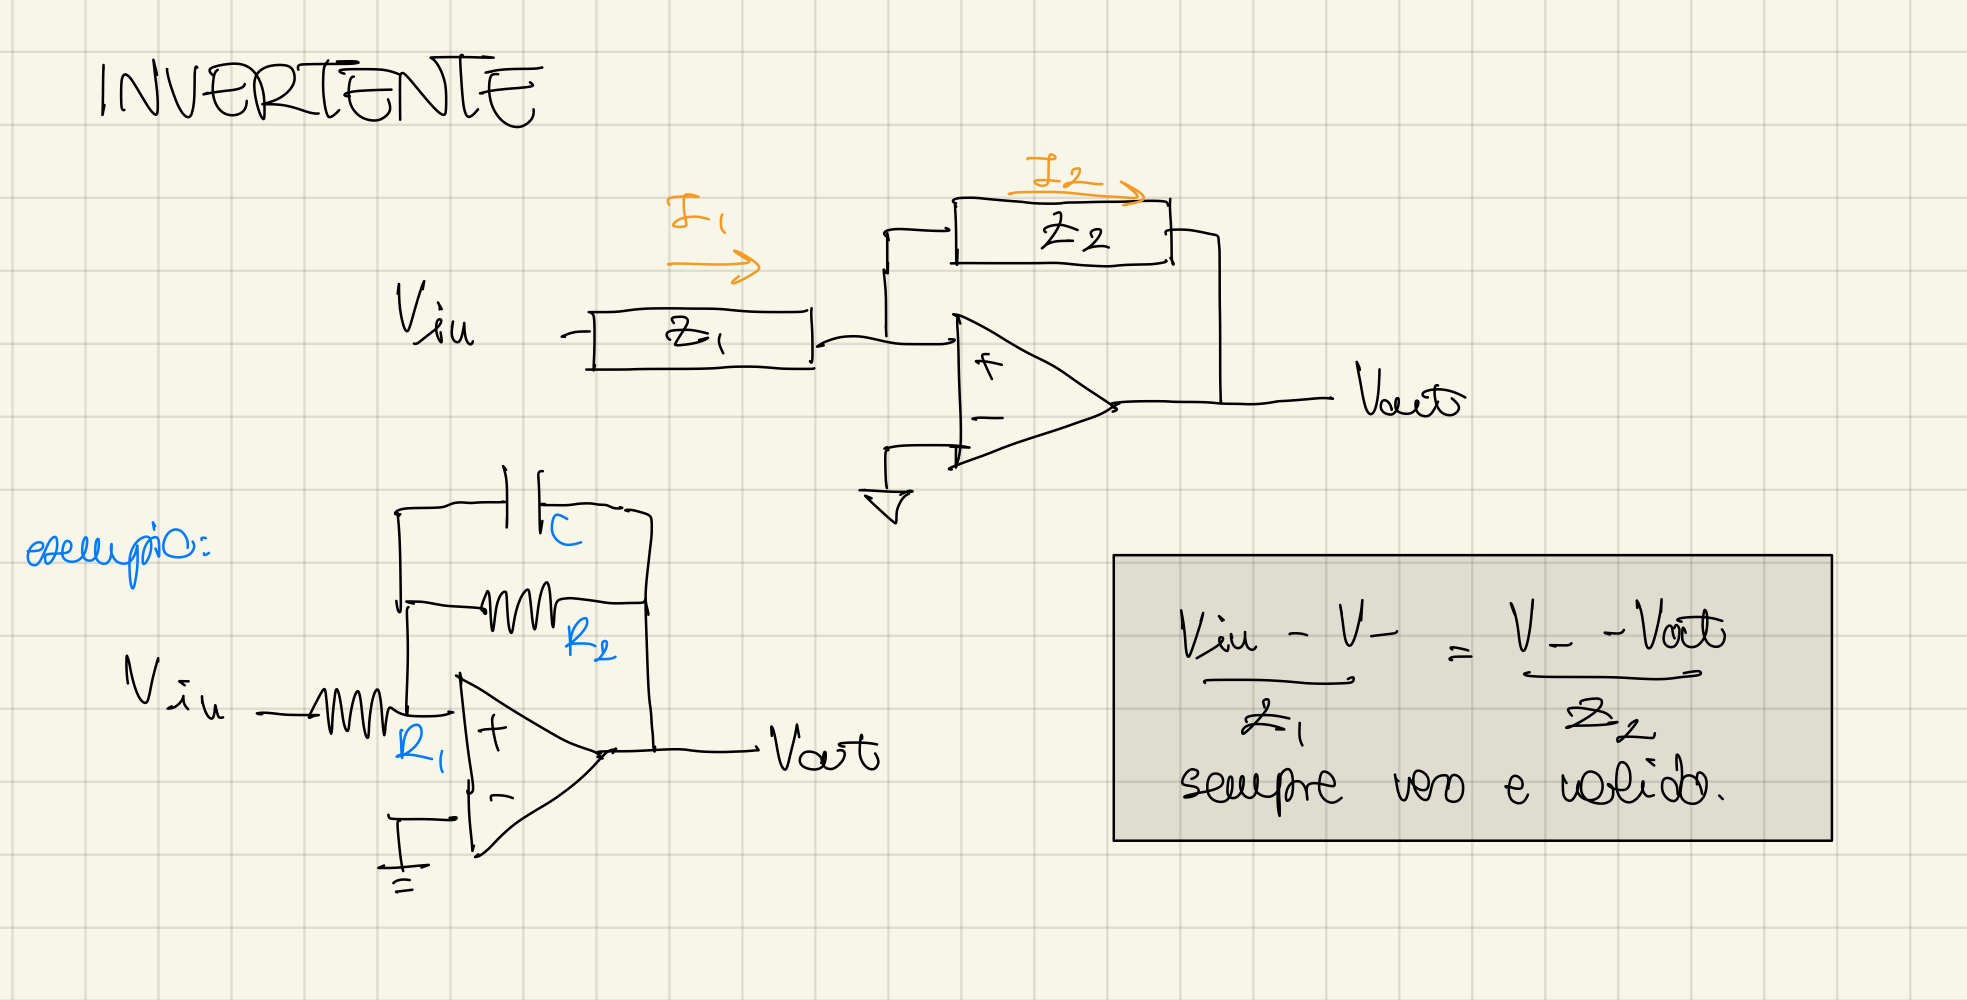 INVERTENTE
I2
I1
Z2
Vin
Z1
+
−
Vout
esempio:
C
R2
Vin
R1
+
−
Vout
Vin - V- = V- - Vout
Z1 Z2
sempre vero e valido.